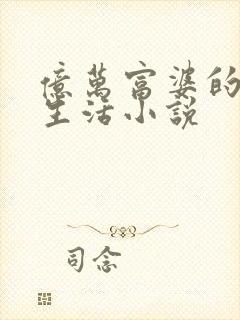 億萬富婆的
生活小說
司念